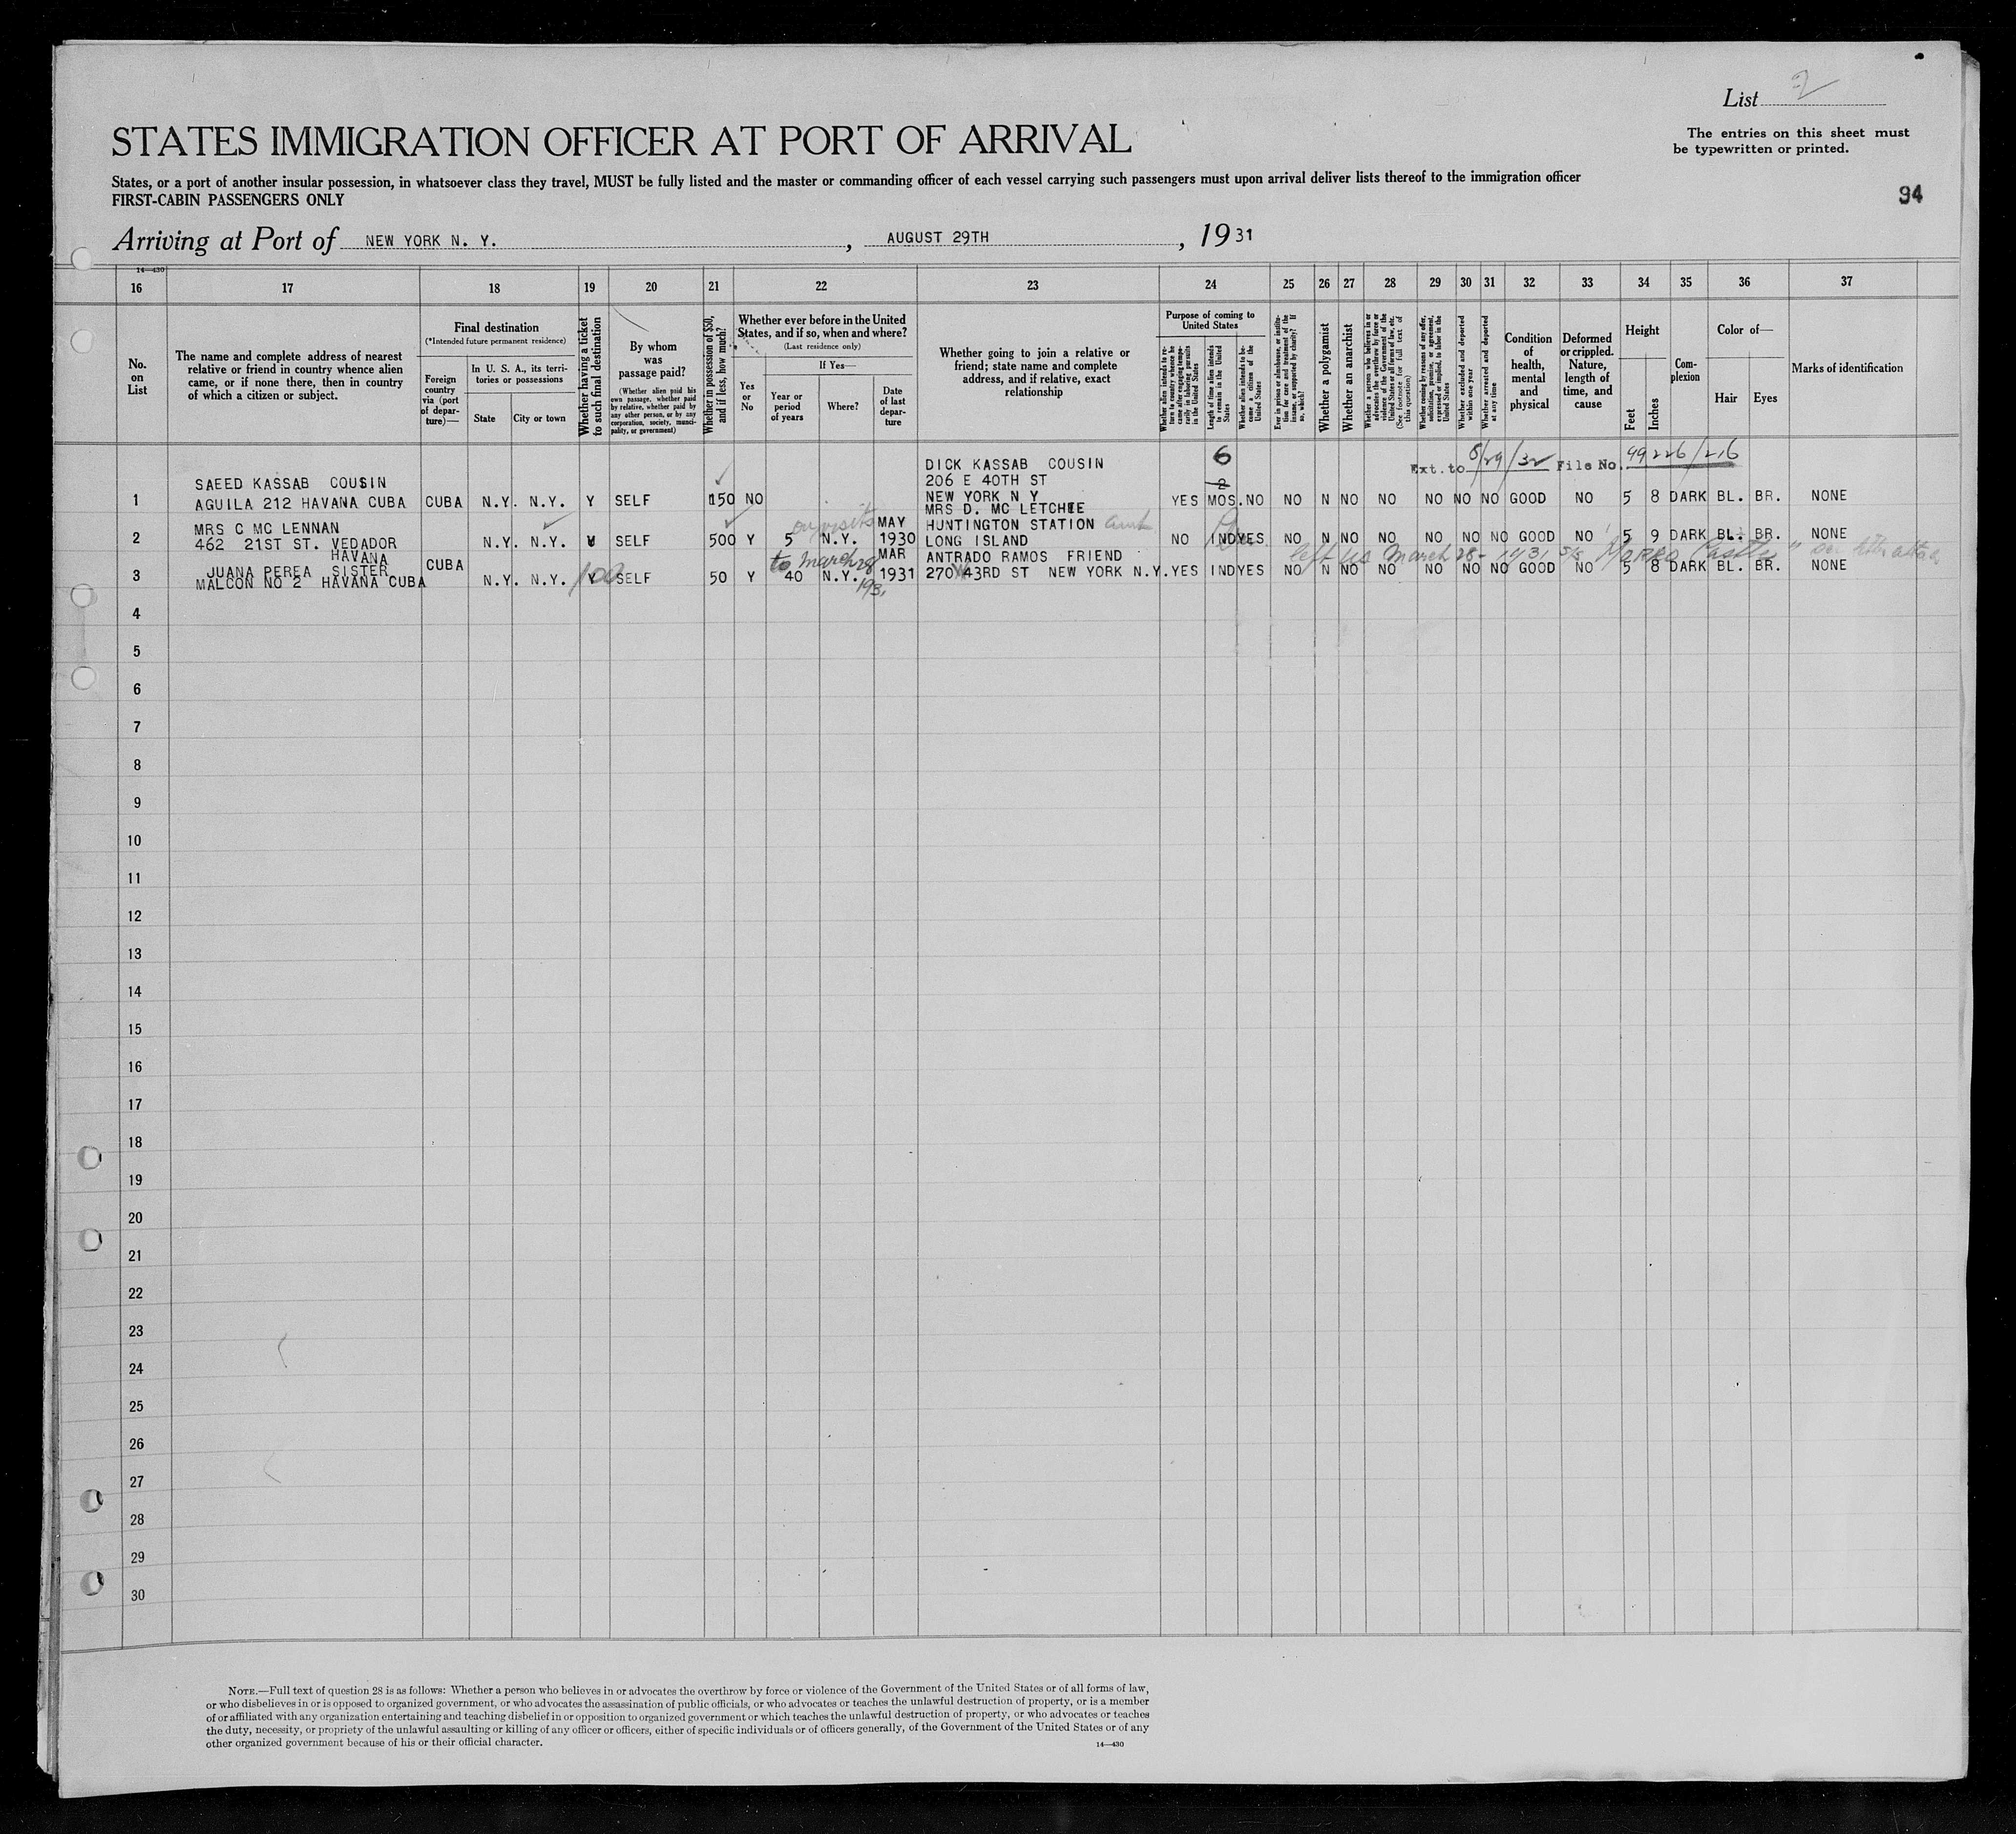 List 2
STATES IMMIGRATION OFFICER AT PORT OF ARRIVAL
The entries on this sheet must
be typewritten or printed.
States, or a port of another insular possession, in whatsoever class they travel, MUST be fully listed and the master or commanding officer of each vessel carrying such passengers must upon arrival deliver lists thereof to the immigration officer
FIRST-CABIN PASSENGERS ONLY
94
Arriving at Port of NEW YORK N. Y. , AUGUST 29TH , 19 31
14—430
16 17 18 19 20 21 22 23 24 25 26 27 28 29 30 31 32 33 34 35 36 37
No. on List
The name and complete address of nearest
relative or friend in country whence alien
came, or if none there, then in country
of which a citizen or subject.
Final destination
(*Intended future permanent residence)
Foreign country via (port of departure)—
In U. S. A., its territories or possessions
State
City or town
Whether having a ticket to such final destination
By whom was passage paid?
(Whether alien paid his own passage, whether paid by relative, whether paid by any other person, or by any corporation, society, municipality, or government)
Whether in possession of $50, and if less, how much?
Whether ever before in the United States, and if so, when and where?
(Last residence only)
Yes or No
If Yes—
Year or period of years
Where?
Date of last departure
Whether going to join a relative or
friend; state name and complete
address, and if relative, exact
relationship
Purpose of coming to United States
Whether alien intends to return to country whence he came after engaging temporarily in laboring pursuits in the United States
Length of time alien intends to remain in the United States
Whether alien intends to become a citizen of the United States
Ever in prison or almshouse, or institution for care and treatment of the insane, or supported by charity? If so, which?
Whether a polygamist
Whether an anarchist
Whether a person who believes in or advocates the overthrow by force or violence of the Government of the United States or all forms of law, etc. (See footnote for full text of this question)
Whether coming by reasons of any offer, solicitation, promise, or agreement, expressed or implied, to labor in the United States
Whether excluded and deported within one year
Whether arrested and deported at any time
Condition of health, mental and physical
Deformed or crippled. Nature, length of time, and cause
Height
Feet
Inches
Complexion
Color of—
Hair
Eyes
Marks of identification
6
Ext. to 8/29/32 File No. 99226/216
SAEED KASSAB COUSIN DICK KASSAB COUSIN
206 E 40TH ST 2
1 AGUILA 212 HAVANA CUBA CUBA N.Y. N.Y. Y SELF 150 NO NEW YORK N Y YES MOS. NO NO N NO NO NO NO NO GOOD NO 5 8 DARK BL. BR. NONE
MRS C MC LENNAN on visits MAY MRS D. MC LETCHIE
HUNTINGTON STATION aunt
2 462 21ST ST. VEDADOR N.Y. N.Y. Y SELF 500 Y 5 N.Y. 1930 LONG ISLAND NO IND YES. NO N NO NO NO NO NO GOOD NO 5 9 DARK BL. BR. NONE
HAVANA
left US March 28- 1931 S/S Morro Castle"
to March 28 1931
JUANA PEREA SISTER CUBA MAR ANTRADO RAMOS FRIEND
3 MALCON NO 2 HAVANA CUBA N.Y. N.Y. 100 Y SELF 50 Y 40 N.Y. 1931 270 43RD ST NEW YORK N.Y. YES IND YES NO N NO NO NO NO NO GOOD NO 5 8 DARK BL. BR. NONE
4
5
6
7
8
9
10
11
12
13
14
15
16
17
18
19
20
21
22
23
24
25
26
27
28
29
30
NOTE.—Full text of question 28 is as follows: Whether a person who believes in or advocates the overthrow by force or violence of the Government of the United States or of all forms of law,
or who disbelieves in or is opposed to organized government, or who advocates the assassination of public officials, or who advocates or teaches the unlawful destruction of property, or is a member
of or affiliated with any organization entertaining and teaching disbelief in or opposition to organized government or which teaches the unlawful destruction of property, or who advocates or teaches
the duty, necessity, or propriety of the unlawful assaulting or killing of any officer or officers, either of specific individuals or of officers generally, of the Government of the United States or of any
other organized government because of his or their official character.
14—430